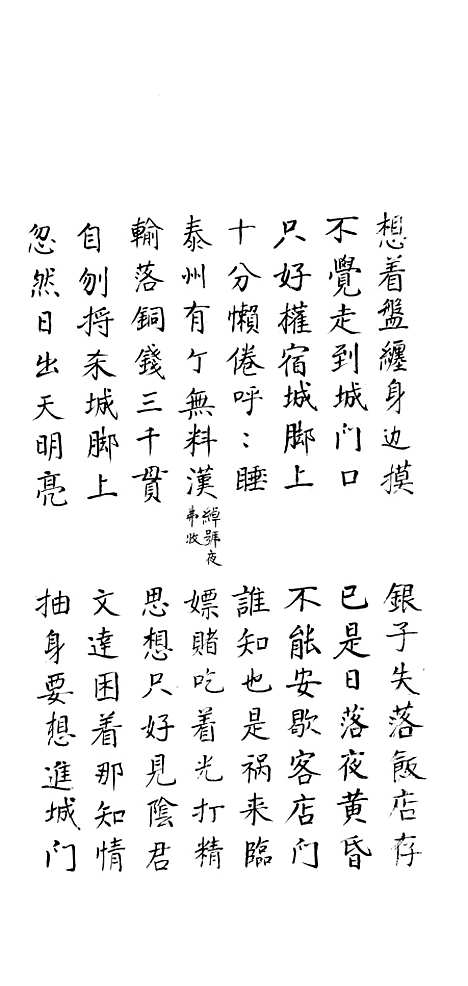 想着盤纏身边摸　銀子失落飯店存
不覺走到城门口　已是日落夜黄昏
只好權宿城脚上　不能安歇客店门
十分懶倦呼：睡　誰知也是祸来臨
泰州有亇無料漢綽號夜弗收　嫖賭吃着光打精
輸落銅錢三千貫　思想只好見陰君
自刎捋夲城脚上　文達困着那知情
忽然日出天明亮　抽身要想進城门